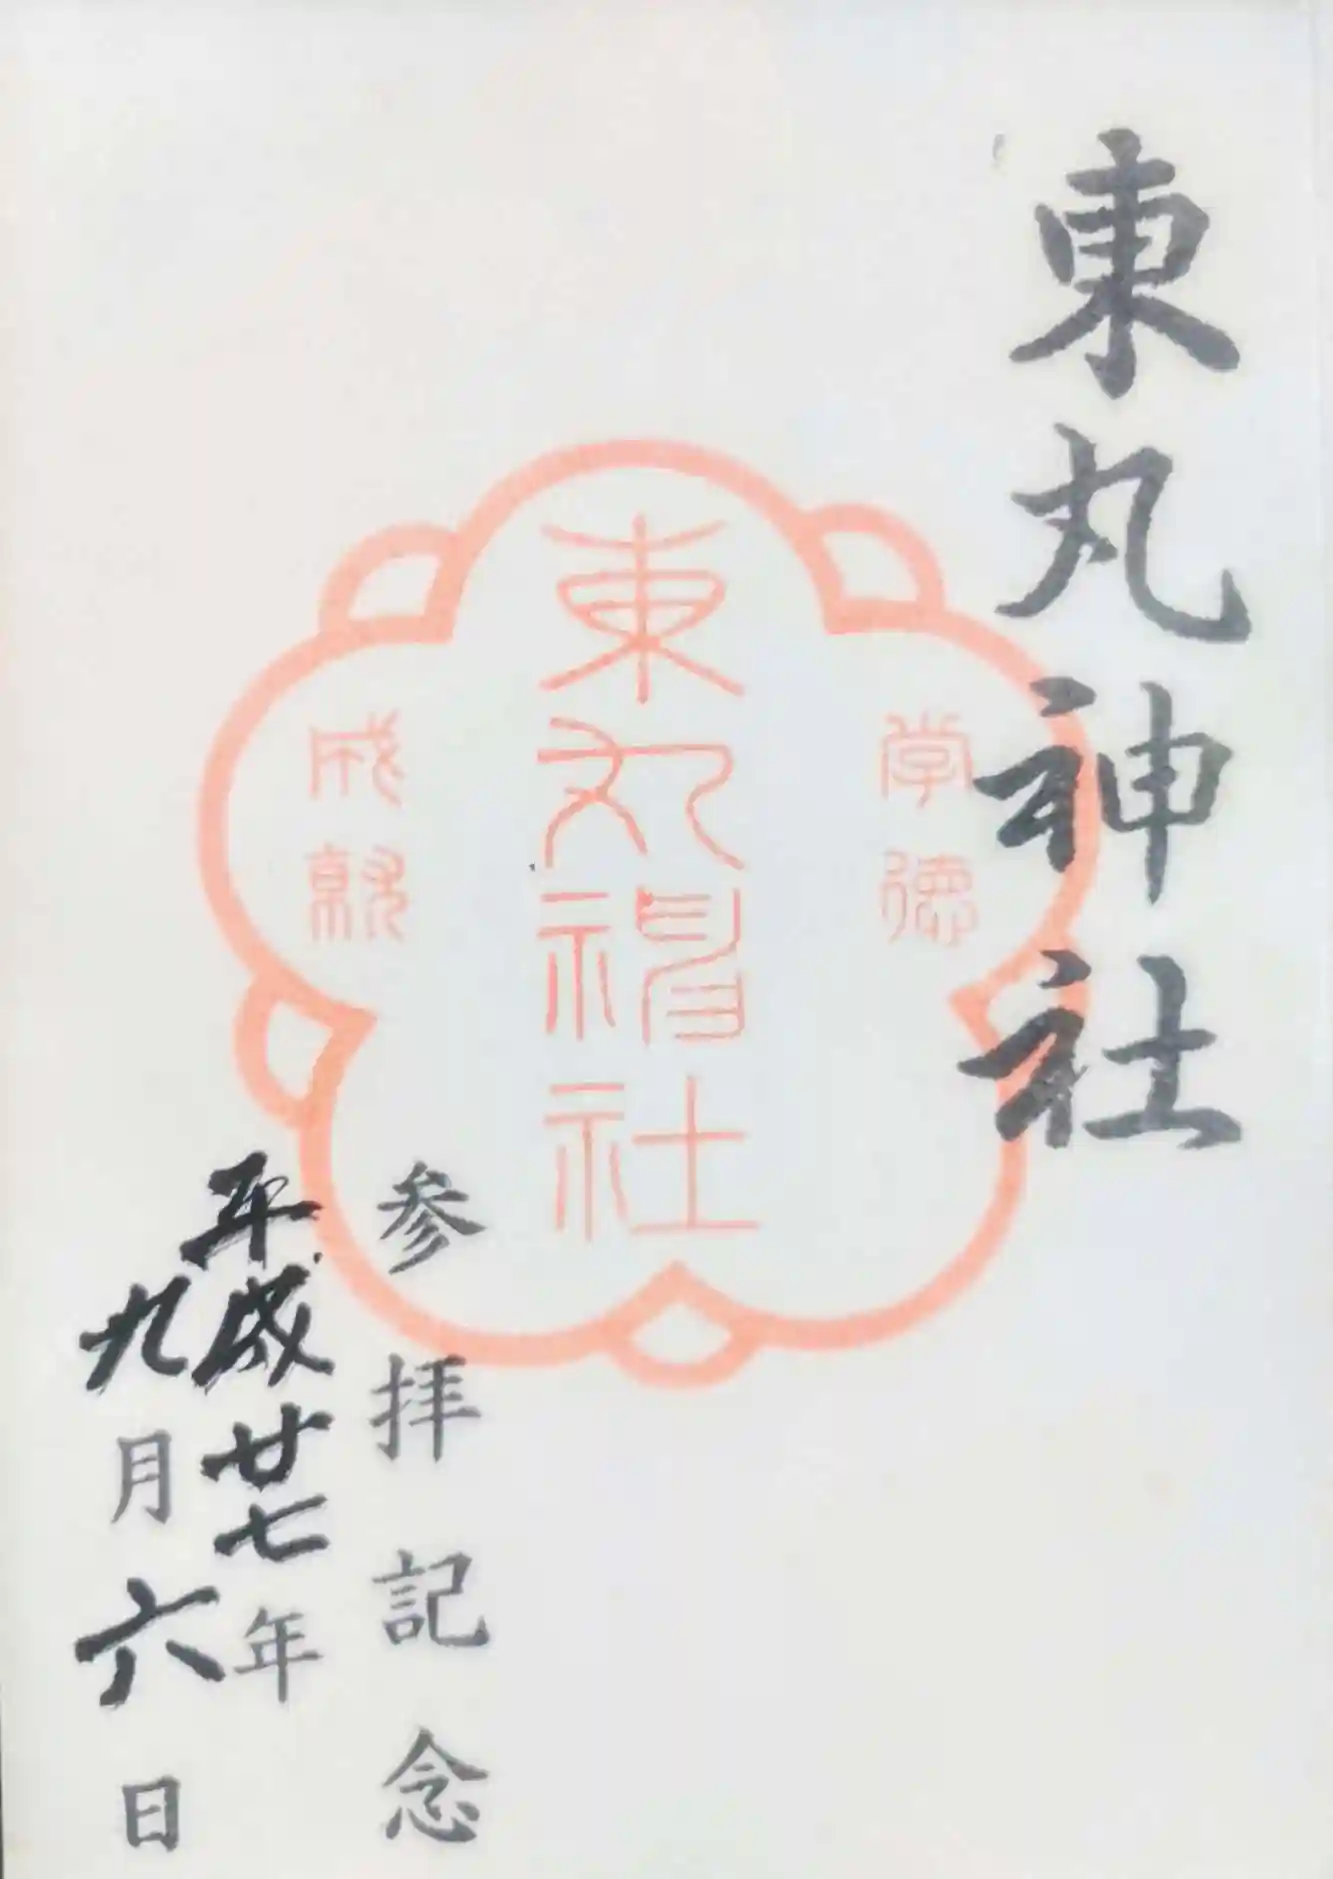 東丸神社
学徳
東丸神社
成就
参拝記念
平成廿七年
九月六日